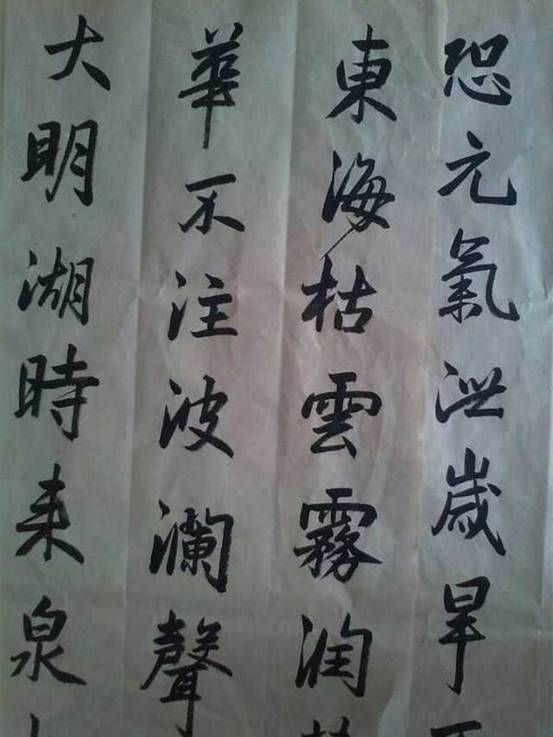 恐元氣泄歲旱
東海枯雲霧潤
華不注波瀾聲
大明湖時来泉